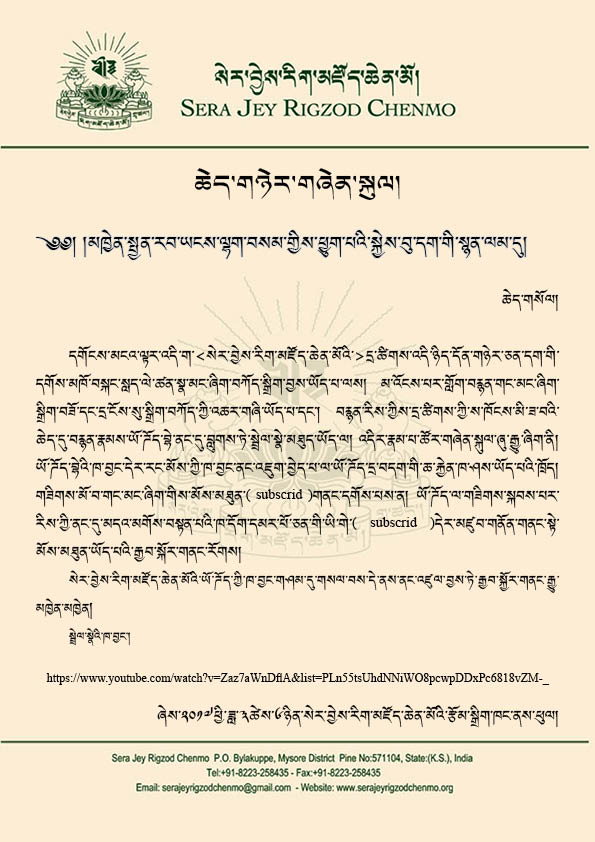 སེར་བྱེས་རིག་མཛོད་ཆེན་མོ།
SERA JEY RIGZOD CHENMO
ཆེད་གཉེར་གཞེན་སྐུལ།
༄༅། །མཁྱེན་སྤྱན་རབ་ཡངས་ལྷག་བསམ་གྱིས་ཕྱུག་པའི་སྐྱེས་བུ་དག་གི་སྙན་ལམ་དུ།
ཆེད་གསོལ།
དགོངས་མངའ་ལྟར་འདི་ག་<སེར་བྱེས་རིག་མཛོད་ཆེན་མོའི་>དྲ་ཚིགས་འདི་ཉིད་དོན་གཉེར་ཅན་དག་གི་
དགོས་མཁོ་བསྐང་སླད་ལེ་ཚན་སྣ་མང་ཞིག་བཀོད་སྒྲིག་བྱས་ཡོད་པ་ལས། མ་འོངས་པར་གློག་བརྙན་གང་མང་ཞིག་
སྒྲིག་བཟོ་དང་དྲ་ངོས་སུ་སྒྲིག་བཀོད་ཀྱི་འཆར་གཞི་ཡོད་པ་དང་། བརྙན་རིས་ཀྱིས་དྲ་ཚིགས་ཀྱི་ས་ཁོངས་མི་ཟ་བའི་
ཆེད་དུ་བརྙན་རྣམས་ཡོ་ཊོད་སྦེ་ནང་དུ་བླུགས་ཏེ་སྦྲེལ་སྣེ་མཐུད་ཡོད་ལ། འདིར་རྣམ་པ་ཚོར་གཞེན་སྐུལ་ཞུ་རྒྱུ་ཞིག་ནི།
ཡོ་ཊོད་སྦེའི་ཁ་བྱང་དེར་རང་མོས་ཀྱི་ཁ་བྱང་ནང་འཇུག་བྱེད་པ་ལ་ཡོ་ཊོད་དྲ་བདག་གི་ཆ་རྐྱེན་ཁ་ཤས་ཡོད་པའི་ཁྲོད།
གཟིགས་མོ་བ་གང་མང་ཞིག་གིས་མོས་མཐུན་( subscrid )གནང་དགོས་པས་ན། ཡོ་ཊོད་ལ་གཟིགས་སྐབས་པར་
རིས་ཀྱི་ནང་དུ་མདའ་མགོས་བསྟན་པའི་ཁ་དོག་དམར་པོ་ཅན་གྱི་ཡི་གེ་( subscrid )དེར་མཛུབ་གནོན་གནང་སྟེ་
མོས་མཐུན་ཡོད་པའི་རྒྱབ་སྐོར་གནང་རོགས།
སེར་བྱེས་རིག་མཛོད་ཆེན་མོའི་ཡོ་ཊོད་ཀྱི་ཁ་བྱང་གཤམ་དུ་གསལ་བས་དེ་ནས་ནང་འཛུལ་བྱས་ཏེ་རྒྱབ་སྐྱོར་གནང་རྒྱུ་
མཁྱེན་མཁྱེན།
སྦྲེལ་སྣེའི་ཁ་བྱང་།
https://www.youtube.com/watch?v=Zaz7aWnDflA&list=PLn55tsUhdNNiWO8pcwpDDxPc6818vZM-_
ཞེས་༢༠༡༧་ཕྱི་ཟླ་༣་ཚེས་༦་ཉིན་སེར་བྱེས་རིག་མཛོད་ཆེན་མོའི་རྩོམ་སྒྲིག་ཁང་ནས་ཕུལ།
Sera Jey Rigzod Chenmo P.O. Bylakuppe, Mysore District Pine No:571104, State:(K.S.), India
Tel:+91-8223-258435 - Fax:+91-8223-258435
Email: serajeyrigzodchenmo@gmail.com - Website: www.serajeyrigzodchenmo.org